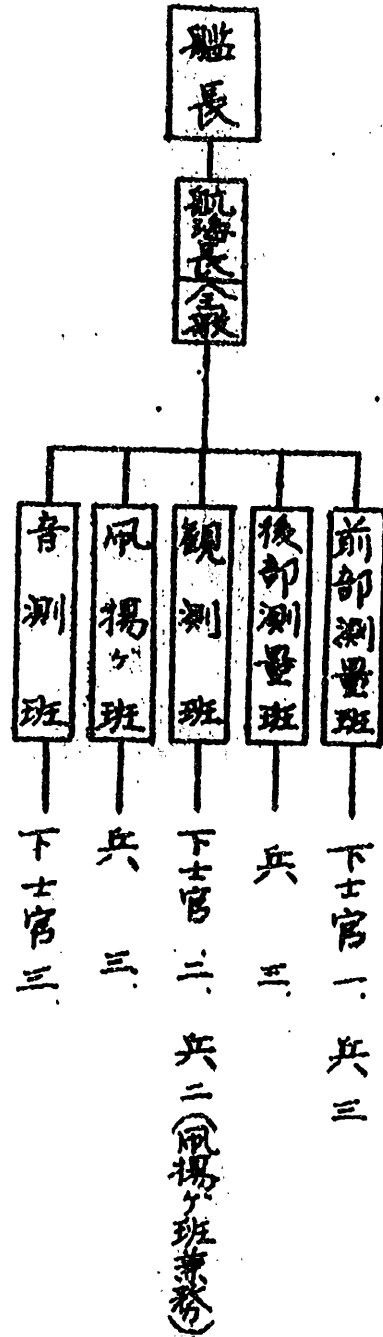 艦長
航海長 全般
前部測量班 下士官 一、 兵 三
後部測量班 兵 三、
観測班 下士官 二、 兵 二(凧揚ゲ班兼務)
凧揚ゲ班 兵 三、
音測班 下士官 三、